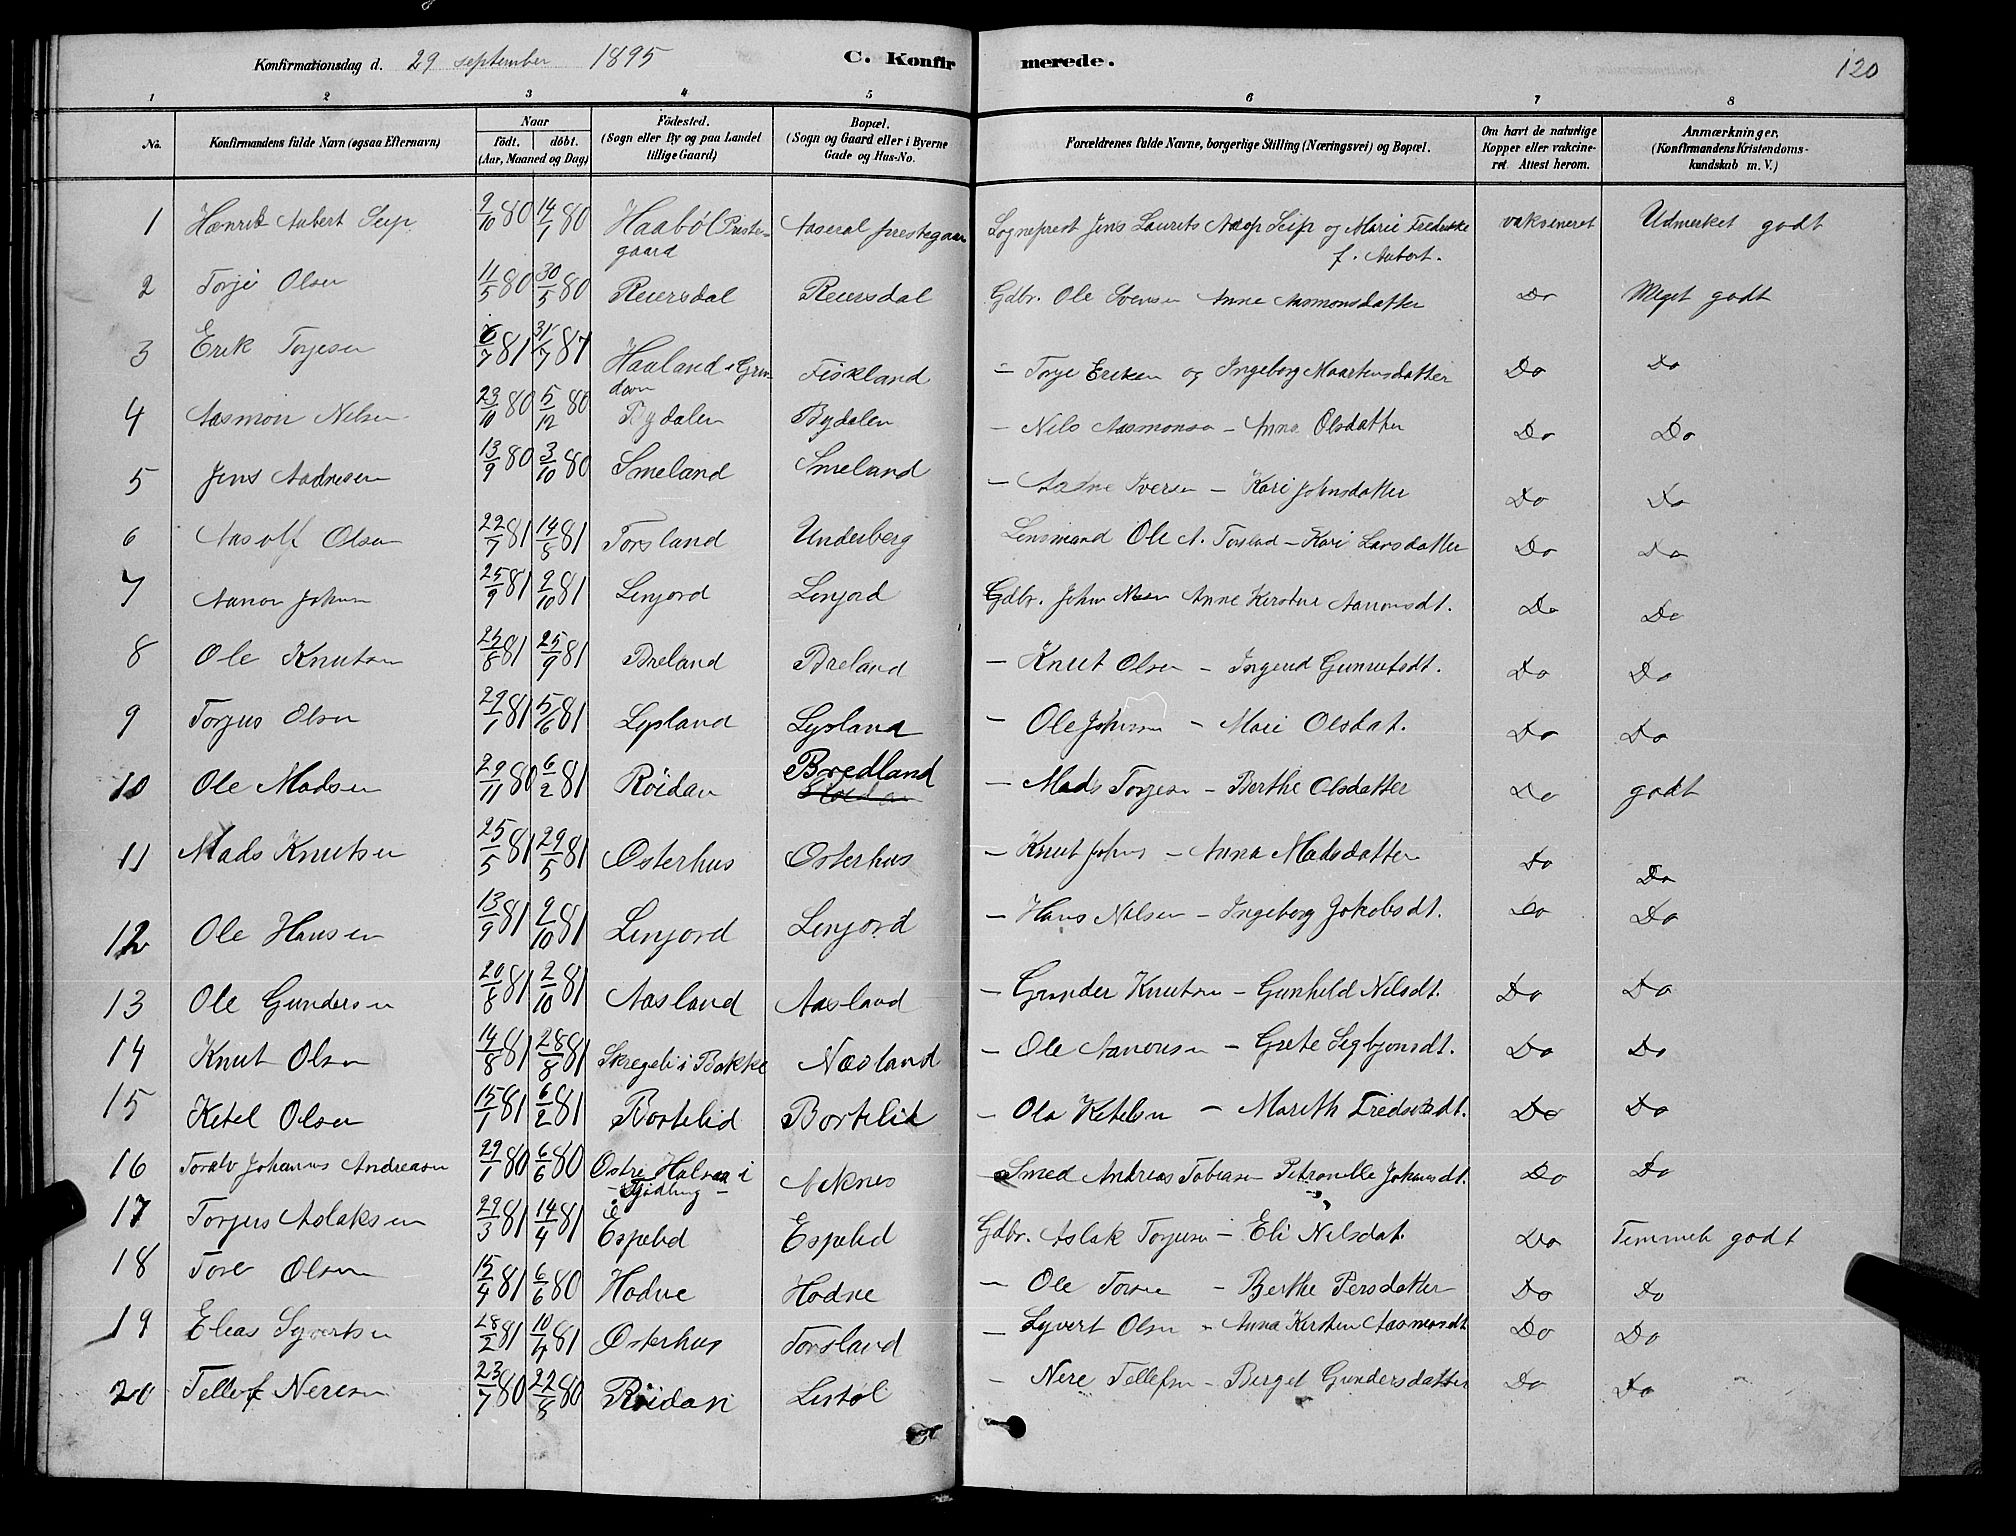 Konfirmationsdag d. 29 september 1895 C. Konfirmerede. 120
1 2 3 4 5 6 7 8
No. Konfirmandens fulde Navn (ogsaa Efternavn) Naar födt. döbt. (Aar, Maaned og Dag) Födested. (Sogn eller By og paa Landet tillige Gaard) Bopæl. (Sogn og Gaard eller i Byerne Gade og Hus-No. Forældrenes fulde Navne, borgerlige Stilling (Næringsvei) og Bopæl. Om havt de naturlige Kopper eller vakcineret. Attest herom. Anmærkninger. (Konfirmandens Kristendomskundskab m. V.)
1 Henrik Aubert Seip 9/10 80 14/1 80 Haaböl Prestegaard Aaseral prestegaar Sogneprest Jens Laurits Seip og Marie Fredrikke f. Aubert. vaksineret Udmerket godt
2 Torje Olsen 11/5 80 30/5 80 Reiersdal Reiersdal Gdbr. Ole Svensen Anne Aasmonsdatter Do Meget godt
3 Erik Torjesen 6/7 81 31/7 81 Haaland i Grindom Fiskland — Torje Eriksen og Ingeborg Maartensdatter Do Do
4 Aasmon Nelsen 23/10 80 5/12 80 Bydalen Bydalen — Nils Aasmonsen — Anna Olsdatter Do Do
5 Jens Aadnesen 13/9 80 3/10 80 Smeland Smeland — Aadne Iversen — Kari Johnsdatter Do Do
6 Aasolf Olsen 22/7 81 14/8 81 Torsland Underberg Lensmand Ole A. Torsland — Kari Larsdatter Do Do
7 Aanon Johnsen 25/9 81 9/10 81 Lenjord Lenjord Gdbr. John Anne Kirstine Aanonsdt. Do Do
8 Ole Knutsen 25/8 81 25/9 81 Breland Breland — Knut Olsen — Ingerid Gunnufsdt. Do Do
9 Torjus Olsen 29/1 81 5/6 81 Lysland Lysland — Ole Johnsen — Mari Olsdat. Do Do
10 Ole Madsen 29/11 80 6/2 81 Röidan Bredland — Mads Torjesen — Berthe Olsdatter Do godt
11 Mads Knutsen 25/5 81 29/5 81 Österhus Österhus — Knut Johns — Anna Madsdatter Do Do
12 Ole Hansen 13/9 81 9/10 81 Lenjord Lenjord — Hans Nilsen — Ingeborg Jakobsdt. Do Do
13 Ole Gundersen 20/8 81 2/10 81 Aasland Aasland — Gunder Knutsen — Gunhild Nilsdt. Do Do
14 Knut Olsen 14/8 81 28/8 81 Skregeli i Bakke Næsland — Ole Aanonsen — Grete Sigbjornsdt. Do Do
15 Ketel Olsen 15/1 81 6/2 81 Bortelid Bortelid — Ola Ketelsen — Marith Fredriksdt. Do Do
16 Toralv Johannes Andreasen 29/1 80 6/6 80 Östre Halsaa i Neknes — Smed Andreas Tobiasen Petronelle Johannsdt. Do Do
17 Torjus Aslaksen 29/3 81 14/4 81 Espelid Espelid Gdbr. Aslak Torjusen — Eli Nilsdat. Do Temmeli godt
18 Tore Olsen 15/4 81 6/6 80 Hodne Hodne — Ole Torsen — Berthe Persdatter Do Do
19 Elias Syvertsen 28/2 81 10/4 81 Österhus Torsland — Syvert Olsen — Anna Kirstine Aasmonsdt Do Do
20 Tellef Neresen 23/7 80 22/8 80 Röidan Listöl — Nere Tellefsen — Berget Gundersdatter Do Do